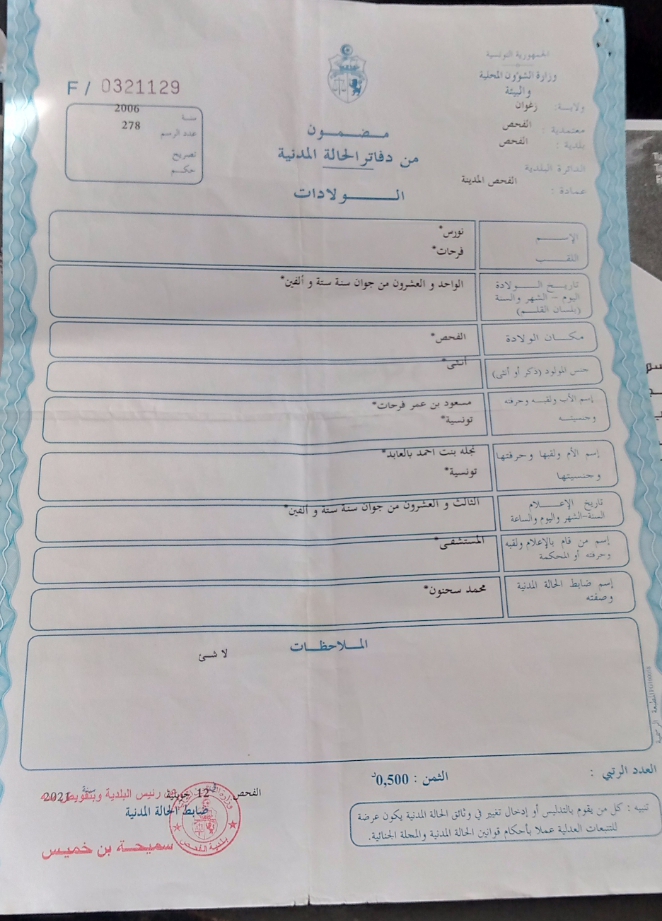 الجمهورية التونسية
وزارة الشؤون المحلية
والبيئة
ولاية : زغوان
معتمدية : الفحص
بلدية : الفحص
الدائرة البلدية
الفحص المدينة
عمادة :
F / 0321129
سنة 2006
عدد الرسم 278
تصريح
حكم
مضمون
من دفاتر الحالة المدنية
الولادات
الإسم نورس*
اللقب فرحات*
تاريخ الولادة الواحد و العشرون من جوان سنة ستة و ألفين*
اليوم - الشهر والسنة
(بلسان القلم)
مكان الولادة الفحص*
جنس المولود (ذكر أو أنثى) أنثى*
إسم الأب ولقبه وحرفته مسعود بن عمر فرحات*
وجنسيته تونسية*
إسم الأم ولقبها وحرفتها نجله بنت احمد بالعابد*
وجنسيتها تونسية*
تاريخ الإعلام الثالث و العشرون من جوان سنة ستة و ألفين*
السنة-الشهر واليوم والساعة
إسم من قام بالإعلام ولقبه المستشفى*
وحرفته أو المحكمة
إسم ضابط الحالة المدنية محمد سحنون*
وصفته
الملاحظات
لا شئ
العدد الرتبي :
الثمن : 0,500د
الفحص 12 سنة 2021
رئيس البلدية وبتفويض منه
ضابط الحالة المدنية
سميحة بن خميس
بلدية الفحص
تنبيه : كل من يقوم بالتدليس أو إدخال تغيير في وثائق الحالة المدنية يكون عرضة
للتتبعات العدلية عملا بأحكام قوانين الحالة المدنية والمجلة الجنائية.